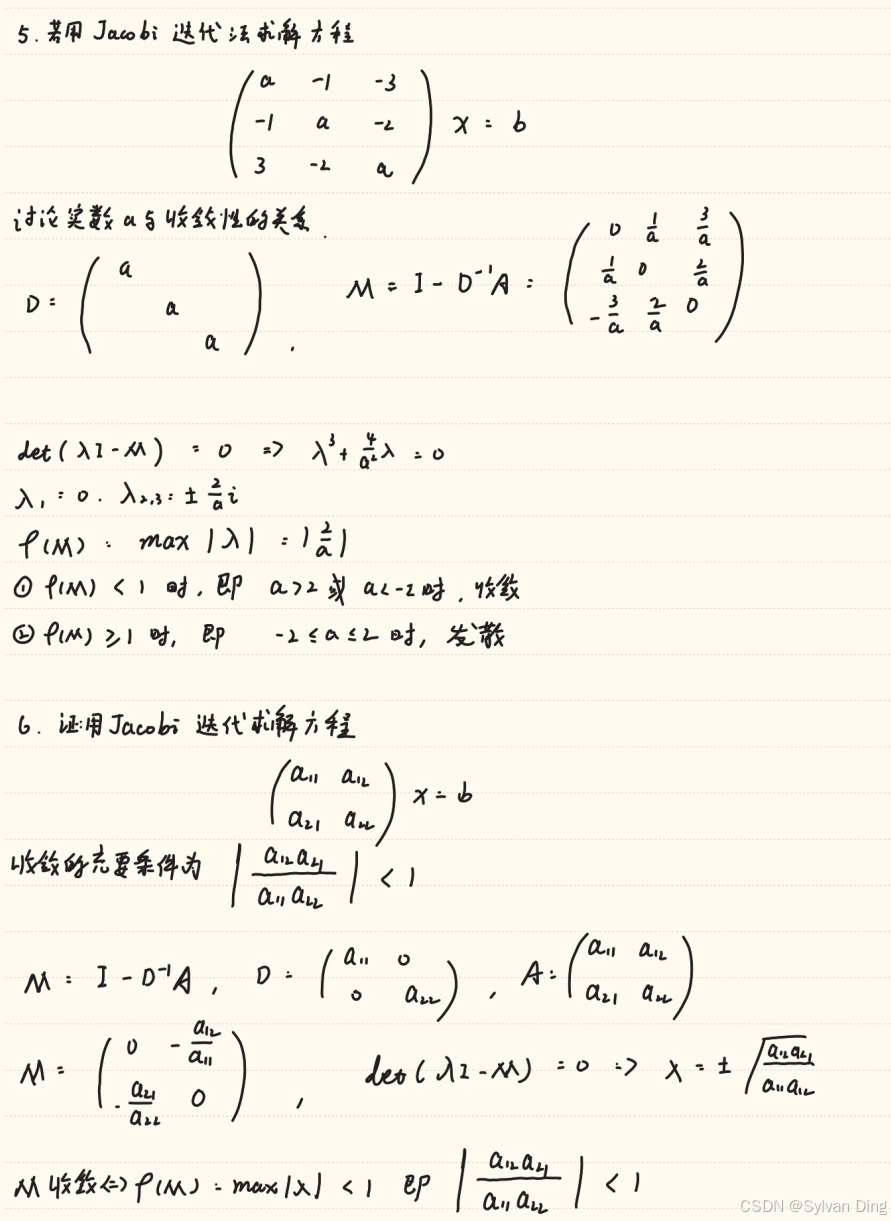 5. 若用 Jacobi 迭代法求解方程
( a -1 -3
-1 a -2
3 -2 a ) x = b
讨论实数 a 与收敛性的关系.
D = ( a
a
a ) , M = I - D⁻¹A = ( 0 1/a 3/a
1/a 0 2/a
-3/a 2/a 0 )
det(λI-M) = 0 => λ³ + 4/a² λ = 0
λ₁ = 0. λ₂,₃ = ± 2/a i
ρ(M) = max |λ| = |2/a|
① ρ(M) < 1 时, 即 a>2 或 a<-2 时, 收敛
② ρ(M) ≥ 1 时, 即 -2 ≤ a ≤ 2 时, 发散
6. 证:用 Jacobi 迭代求解方程
( a₁₁ a₁₂
a₂₁ a₂₂ ) x = b
收敛的充要条件为 | a₁₂a₂₁ / a₁₁a₂₂ | < 1
M = I - D⁻¹A , D = ( a₁₁ 0
0 a₂₂ ) , A = ( a₁₁ a₁₂
a₂₁ a₂₂ )
M = ( 0 -a₁₂/a₁₁
-a₂₁/a₂₂ 0 ) , det(λI-M) = 0 => λ = ± √(a₁₂a₂₁ / a₁₁a₁₂)
M 收敛 <=> ρ(M) = max|λ| < 1 即 | a₁₂a₂₁ / a₁₁a₂₂ | < 1
CSDN @Sylvan Ding